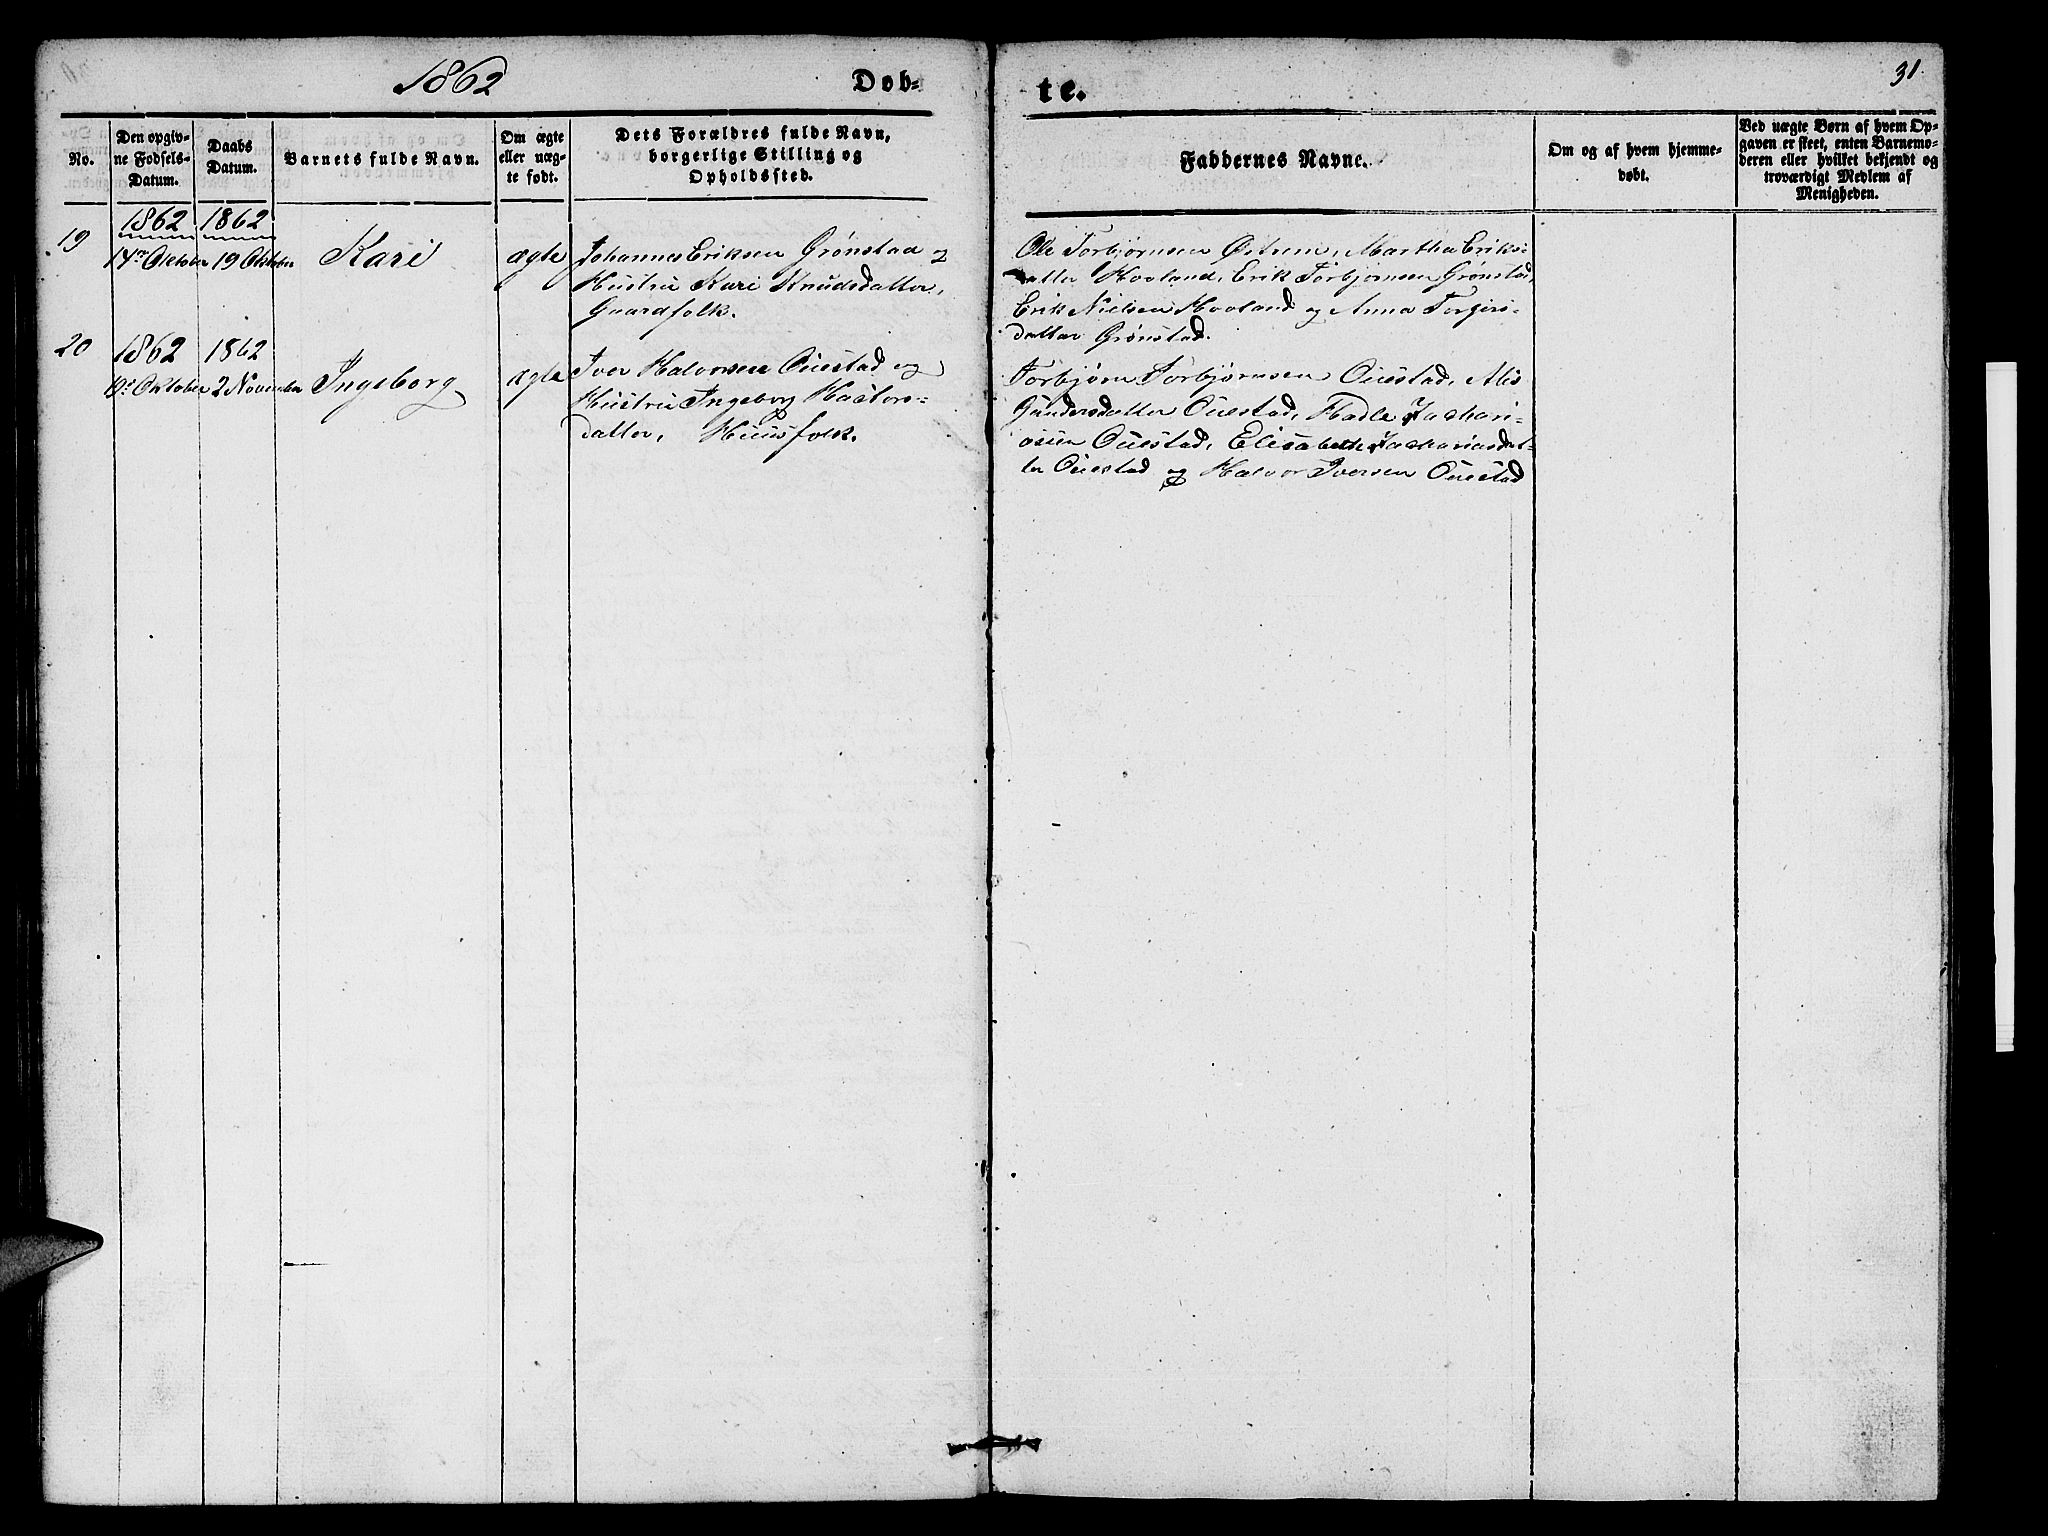 1862
Døb-
te.
31.
No.
Den opgiv-
ne Fødsels-
Datum.
Daabs
Datum.
Barnets fulde Navn.
Om ægte
eller uæg-
te født.
Dets Forældres fulde Navn,
borgerlige Stilling og
Opholdssted.
Faddernes Navne.
Om og af hvem hjemme-
døbt.
Ved uægte Børn af hvem Op-
gaven er skeet, enten Barnemo-
deren eller hvilket bekjendt og
troværdigt Medlem af
Menigheden.
19
1862
14de Oktober
1862
19 Oktober
Kari
ægte
Johannes Eriksen Grønstad og
Hustru Kari Knudsdatter,
Gaardfolk.
Ole Torbjørnsen Østrem, Martha Eriks-
datter Hovland, Erik Torbjørnsen Grønstad,
Erik Nielsen Hovland og Anna Torgers-
datter Grønstad.
20
1862
19de Oktober
1862
2 November
Ingeborg
ægte
Iver Halvorsen Ouestad og
Hustru Ingeborg
datter, Huusfolk.
Torbjørn Torbjørnsen Ouestad,
Gundersdatter Ouestad, Hadle Zachari-
asen Ouestad, Elisabeth Zachariasdat-
ter Ouestad og Halvor Iversen Ouestad